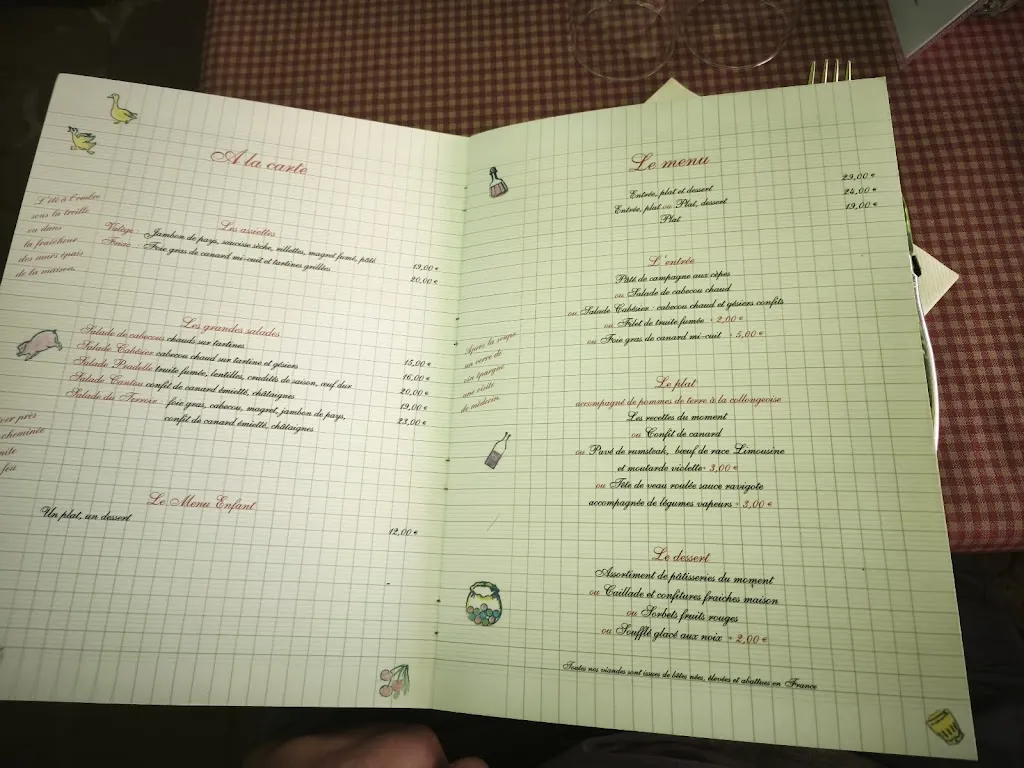 A la carte
L'été à l'ombre
sous la treille
ou dans
la fraîcheur
des murs épais
de la maison.
Les assiettes
Jambon de pays, saucisse sèche, rillettes, magret fumé, pâté 19,00 €
Foie gras de canard mi-cuit et tartines grillées 20,00 €
Les grandes salades
Salade de cabecous chauds sur tartines 15,00 €
Salade Cabésier cabecou chaud sur tartine et gésiers 16,00 €
Salade Pradelle truite fumée, lentilles, crudités de saison, œuf dur 20,00 €
Salade Cantou confit de canard émietté, châtaignes 19,00 €
Salade du Terroir : foie gras, cabecou, magret, jambon de pays, 23,00 €
confit de canard émietté, châtaignes
près
cheminée
feu
Le Menu Enfant
Un plat, un dessert 12,00 €
Le menu
Entrée, plat et dessert 29,00 €
Entrée, plat ou Plat, dessert 24,00 €
Plat 19,00 €
L'entrée
Pâté de campagne aux cèpes
ou Salade de cabecou chaud
ou Salade Cabésier : cabecou chaud et gésiers confits
ou Filet de truite fumée + 2,00 €
ou Foie gras de canard mi-cuit + 5,00 €
Après la soupe
un verre de
vin épargne
une visite
de médecin
Le plat
accompagné de pommes de terre à la collongeoise
Les recettes du moment
ou Confit de canard
ou Pavé de rumsteak, bœuf de race Limousine
et moutarde violette+ 3,00 €
ou Tête de veau roulée sauce ravigote
accompagnée de légumes vapeurs + 3,00 €
Le dessert
Assortiment de pâtisseries du moment
ou Caillade et confitures fraîches maison
ou Sorbets fruits rouges
ou Soufflé glacé aux noix + 2,00 €
Toutes nos viandes sont issues de bêtes nées, élevées et abattues en France